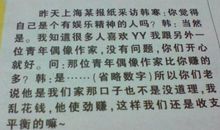 昨天上海某报纸采访韩寒：你觉得
自己是个有娱乐精神的人吗？韩：当然
是。我知道很多人喜欢YY我跟另外一
位青年偶像作家，没有问题，你们开心
就好。问：那位青年偶像作家比你赚的
多？韩：是……（省略数字）所以你们老
说他是我们家那口子也不是没道理，我
乱花钱，他使劲赚，这样我们还是收支
平衡的嘛~